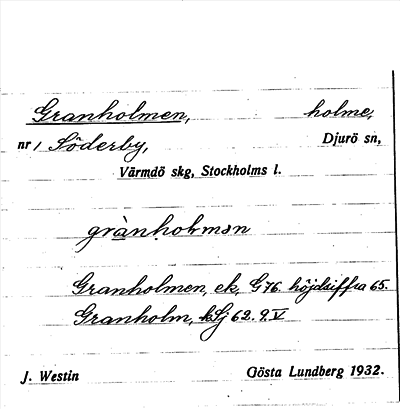 Granholmen, holme,
nr 1 Söderby, Djurö sn,
Värmdö skg, Stockholms l.
grànholmən
Granholmen, ek, G 76. höjdsiffra 65.
Granholm, Sj 62. 9. V
J. Westin Gösta Lundberg 1932.